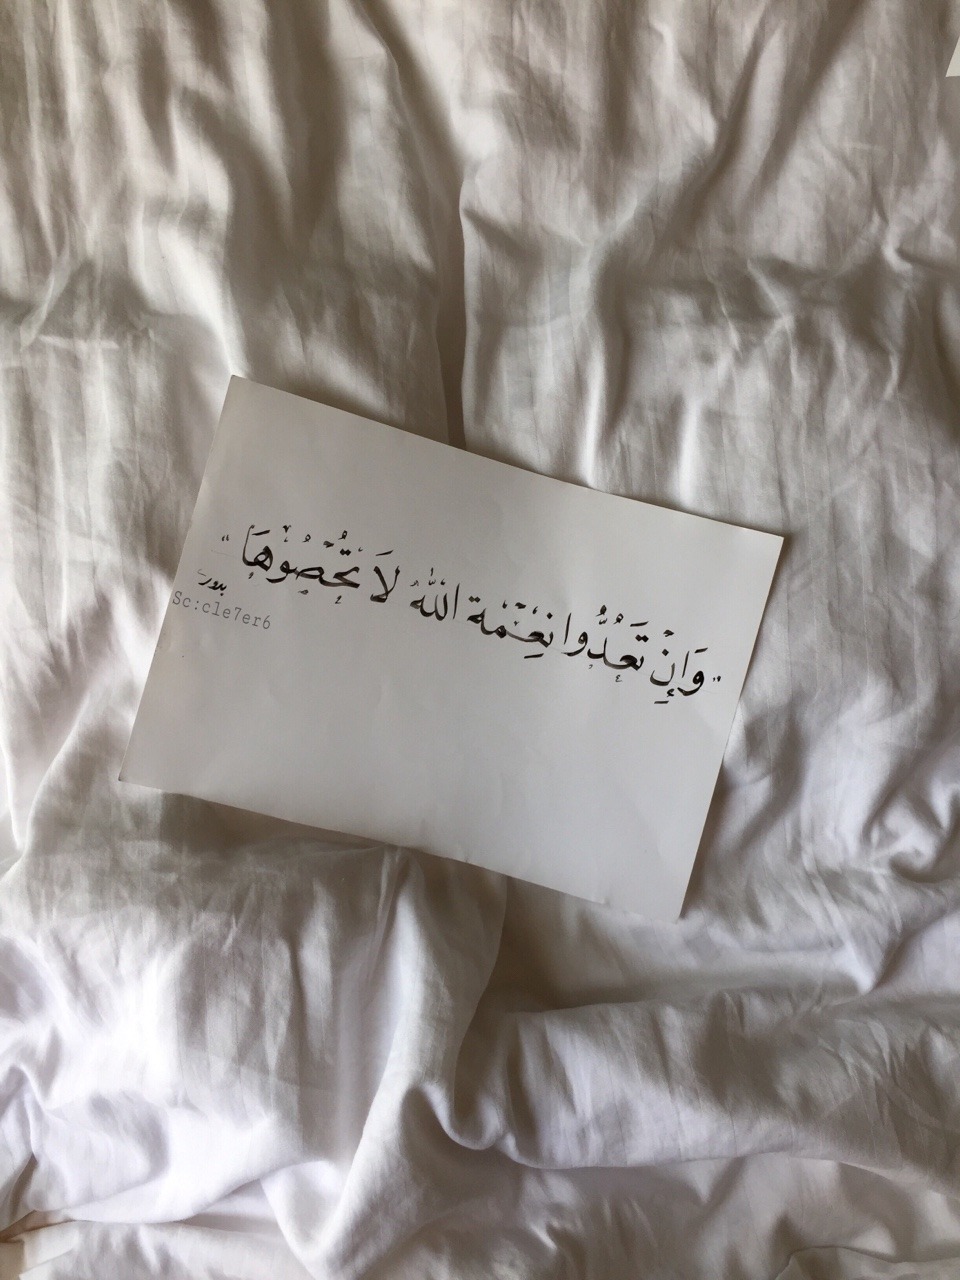 "وَإِنْ تَعُدُّوا نِعْمَة اللَّهِ لَا تُحْصُوهَا"
بدور
Sc:cle7er6